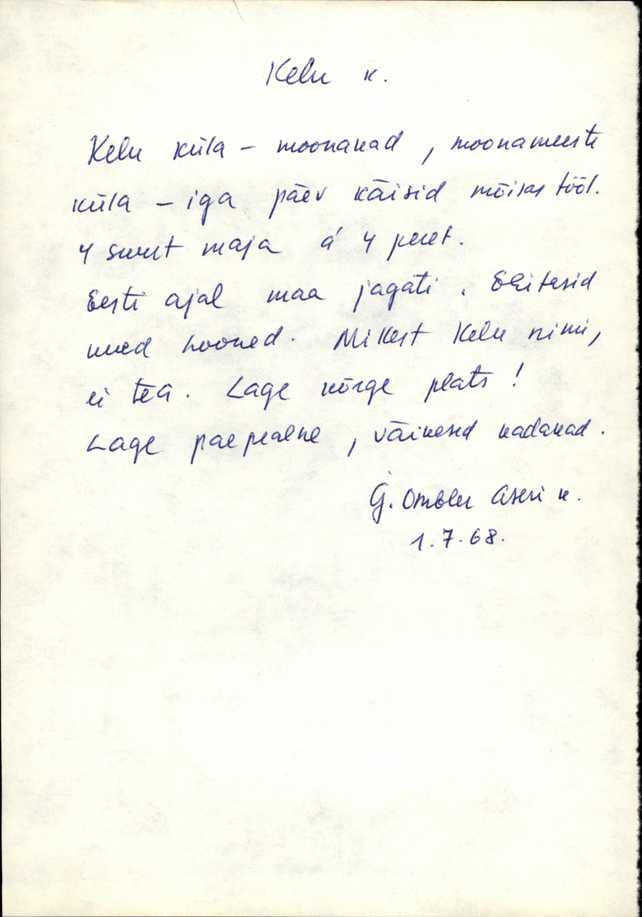 Kelu k.
Kelu küla – moonakad, moonameeste
küla – iga päev käisid mõisas tööl.
4 suurt maja á 4 peret.
Eesti ajal maa jagati. Ehitasid
uued hooned. Mikest Kelu nimi,
ei tea. Lage kõrge plats!
Lage paepealne, väikesed kadakad.
G. Ombler Aseri k.
1.7.68.